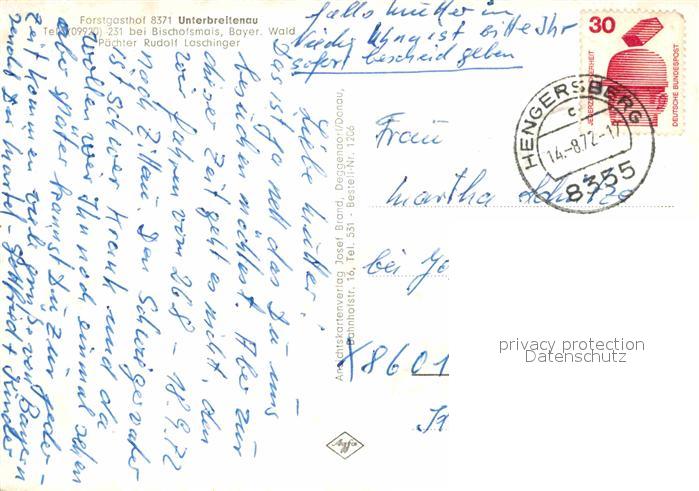 Forstgasthof 8371 Unterbreitenau
Tel. (09920) 231 bei Bischofsmais, Bayer. Wald
Pächter Rudolf Laschinger
hallo Mutter in
ist bitte Ihr
sofort bescheid geben
30
JEDERZEIT SICHERHEIT
DEUTSCHE BUNDESPOST
HENGERSBERG
c
14.-8.72-17
8355
Liebe Mutter!
Das ist ja nett das Du uns
besuchen möchtest. Aber zur
diese Zeit geht es nicht, den
wir fahren vom 26.8 – 18.9.72
nach Zittau. Der Schwiegervater
ist schwer krank und da
wollen wir ihn noch einmal sehen
aber später kannst Du zur jeder-
zeit kommen viele grüße von Bayern
Gottfried + Kinder
Ansichtskartenverlag Josef Brand, Deggendorf/Donau,
Bahnhofstr. 16, Tel. 531 - Bestell-Nr. 1206
Frau
Martha
bei
X8601
Agfa
privacy protection
Datenschutz